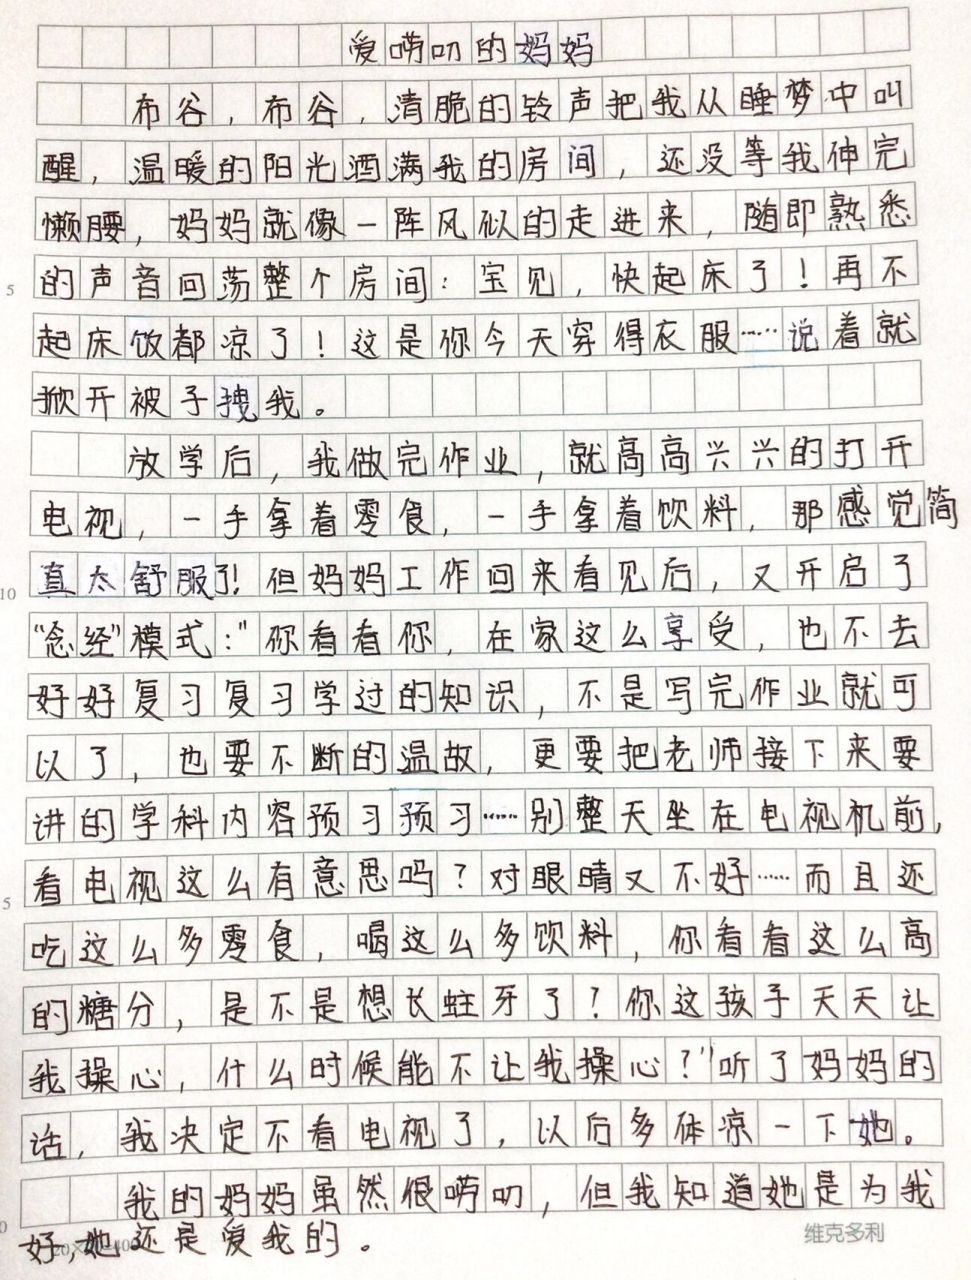 爱唠叨的妈妈
布谷，布谷，清脆的铃声把我从睡梦中叫
醒，温暖的阳光洒满我的房间，还没等我伸完
懒腰，妈妈就像一阵风似的走进来，随即熟悉
的声音回荡整个房间：宝见，快起床了！再不
起床饭都凉了！这是你今天穿得衣服……说着就
掀开被子拽我。
放学后，我做完作业，就高高兴兴的打开
电视，一手拿着零食，一手拿着饮料，那感觉简
真太舒服了！但妈妈工作回来看见后，又开启了
“念经”模式：“你看看你，在家这么享受，也不去
好好复习复习学过的知识，不是写完作业就可
以了，也要不断的温故，更要把老师接下来要
讲的学科内容预习预习……别整天坐在电视机前，
看电视这么有意思吗？对眼睛又不好……而且还
吃这么多零食，喝这么多饮料，你看看这么高
的糖分，是不是想长蛀牙了？你这孩子天天让
我操心，什么时候能不让我操心？”听了妈妈的
话，我决定不看电视了，以后多体凉一下她。
我的妈妈虽然很唠叨，但我知道她是为我
好，她还是爱我的。
20×20=400
维克多利